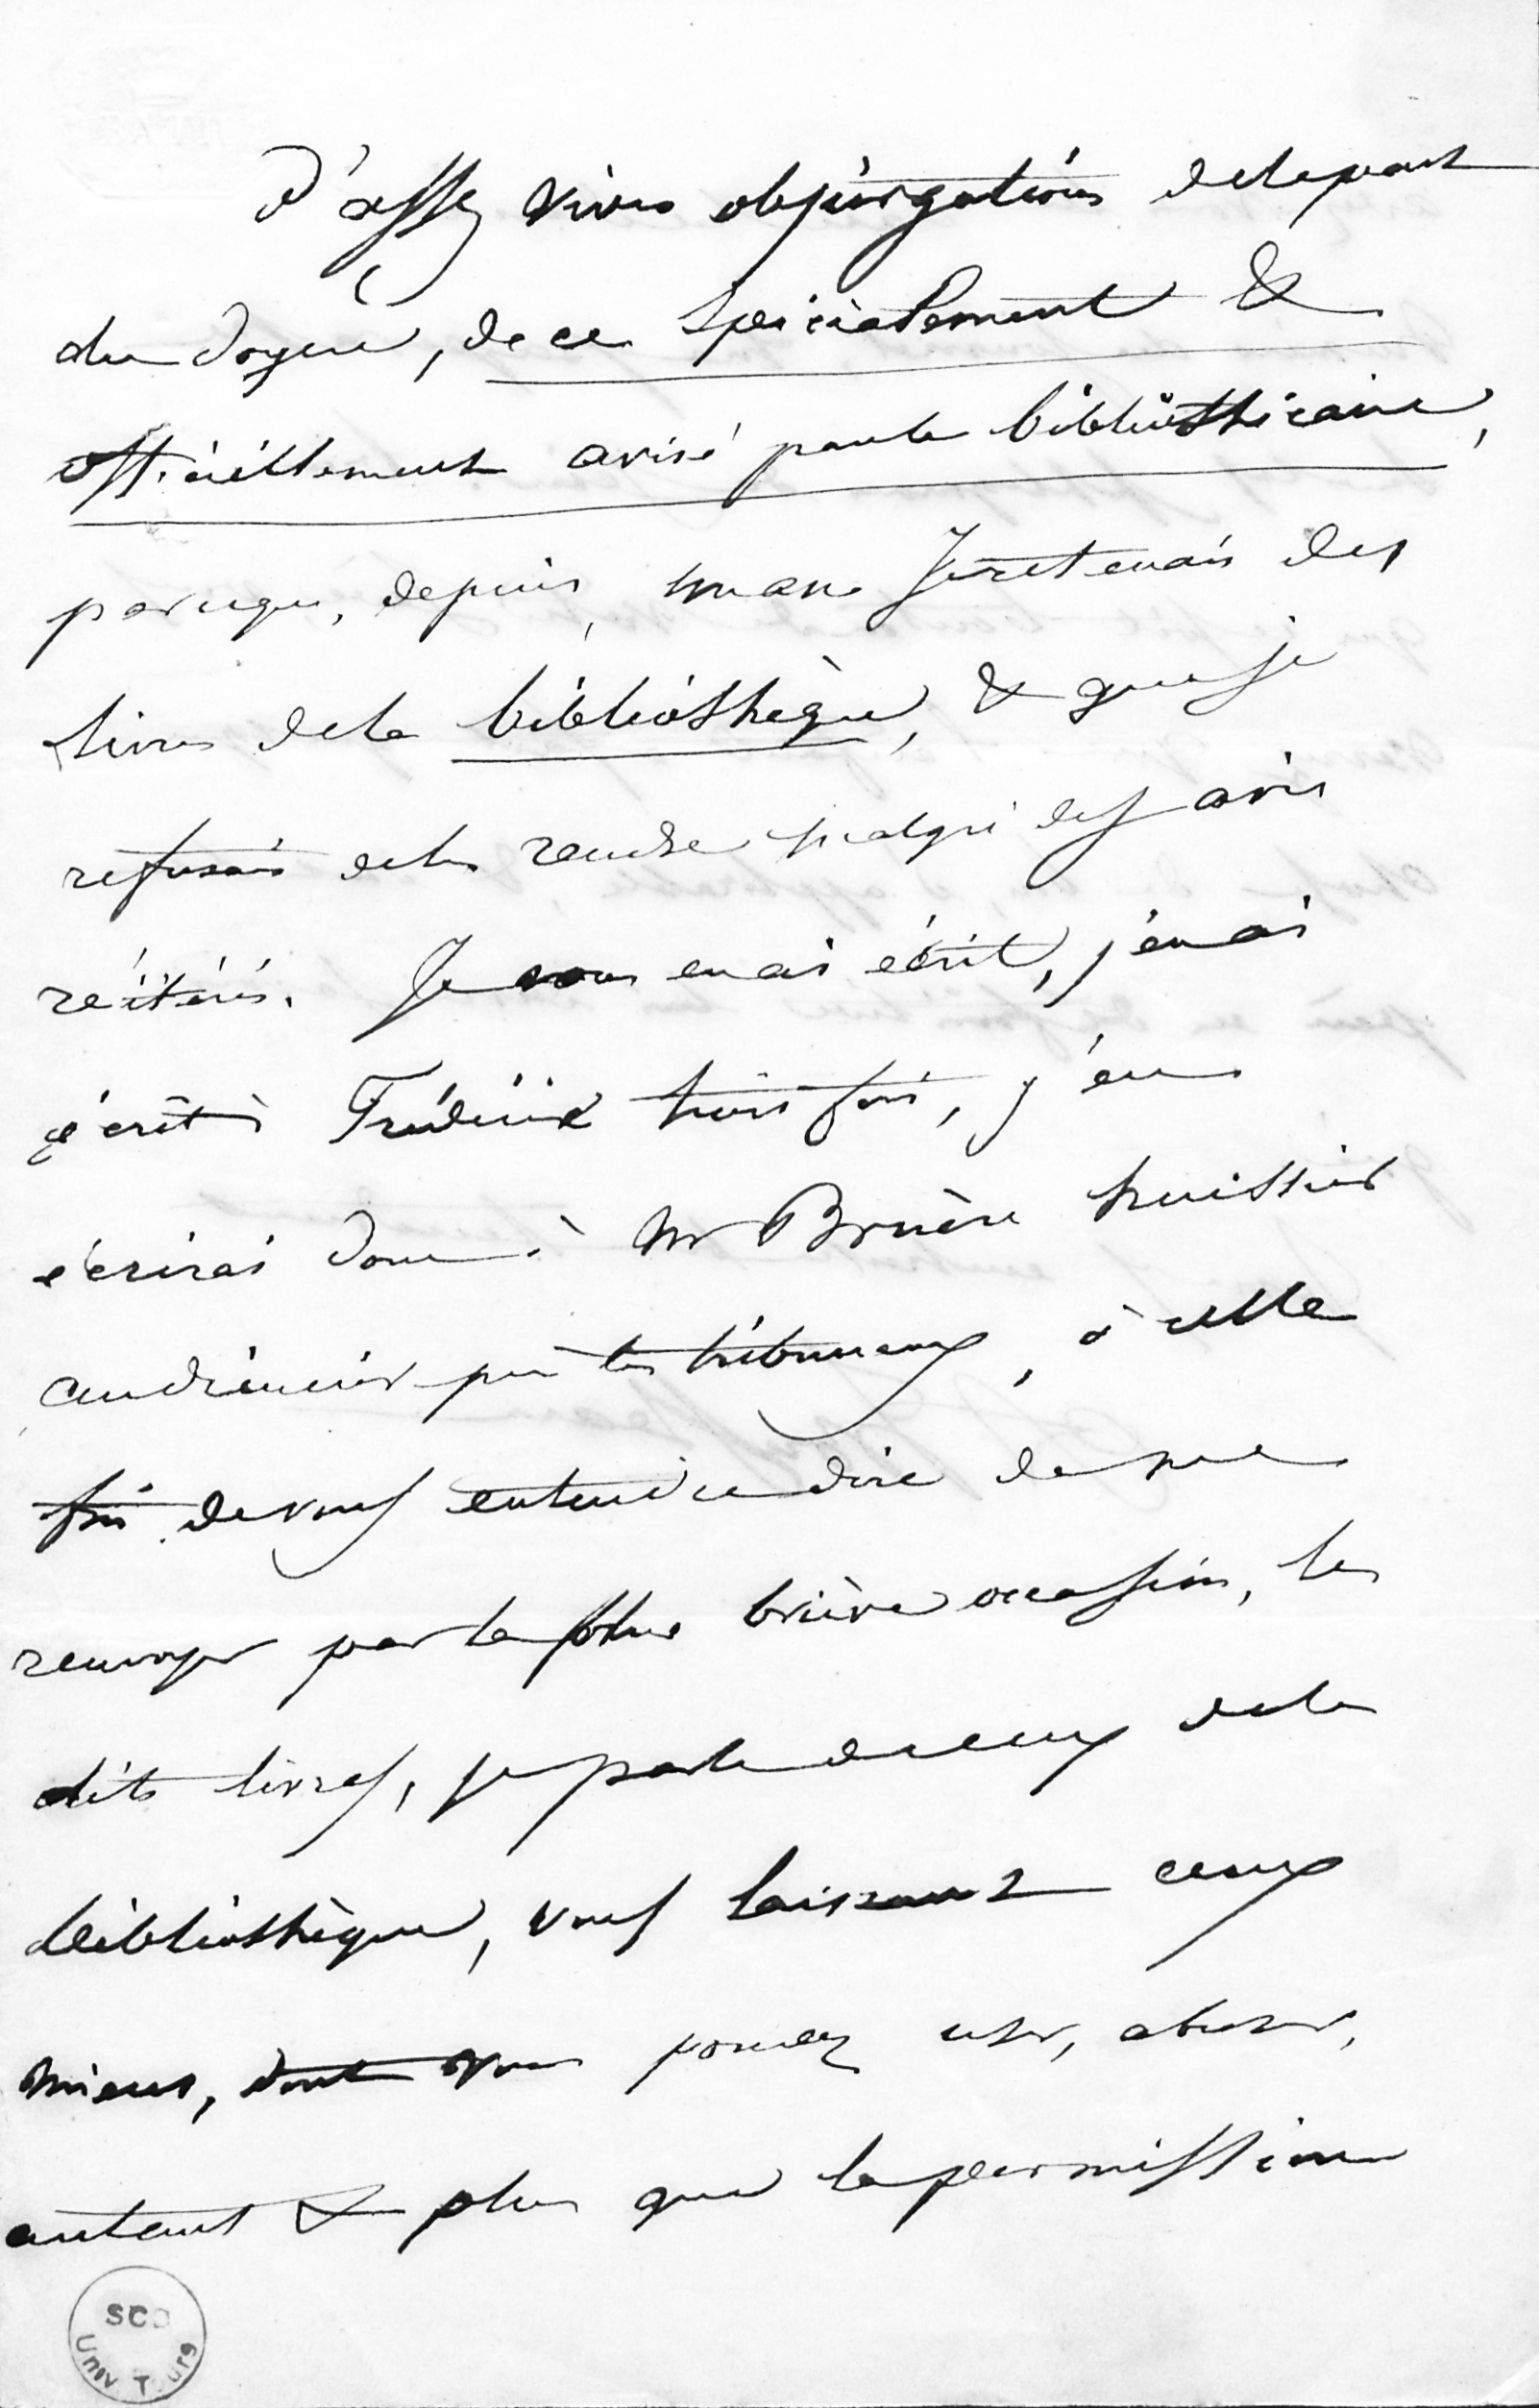 d'assez vives objurgations de la part
du doyen, de ce spécialement &
officiellement avisé par le bibliothécaire,
parceque, depuis, un an je retenais des
livres de la bibliothèque, & que je
refusais de les rendre malgré des avis
réitérés. Je vous en ai écrit, j'en ai
écrit à Frédéric trois fois, j'en
écrirai donc à Mr Bruère huissier
audiencier près les tribunaux, à celle
fin de vous entendre dire de me
renvoyer par la plus briève occasion, les
dits livres, je parle de ceux de la
bibliothèque, vous laissant ceux
miens, dont vous pouvez user, abuser,
autant & plus que la permission
SCD
Univ. T urs